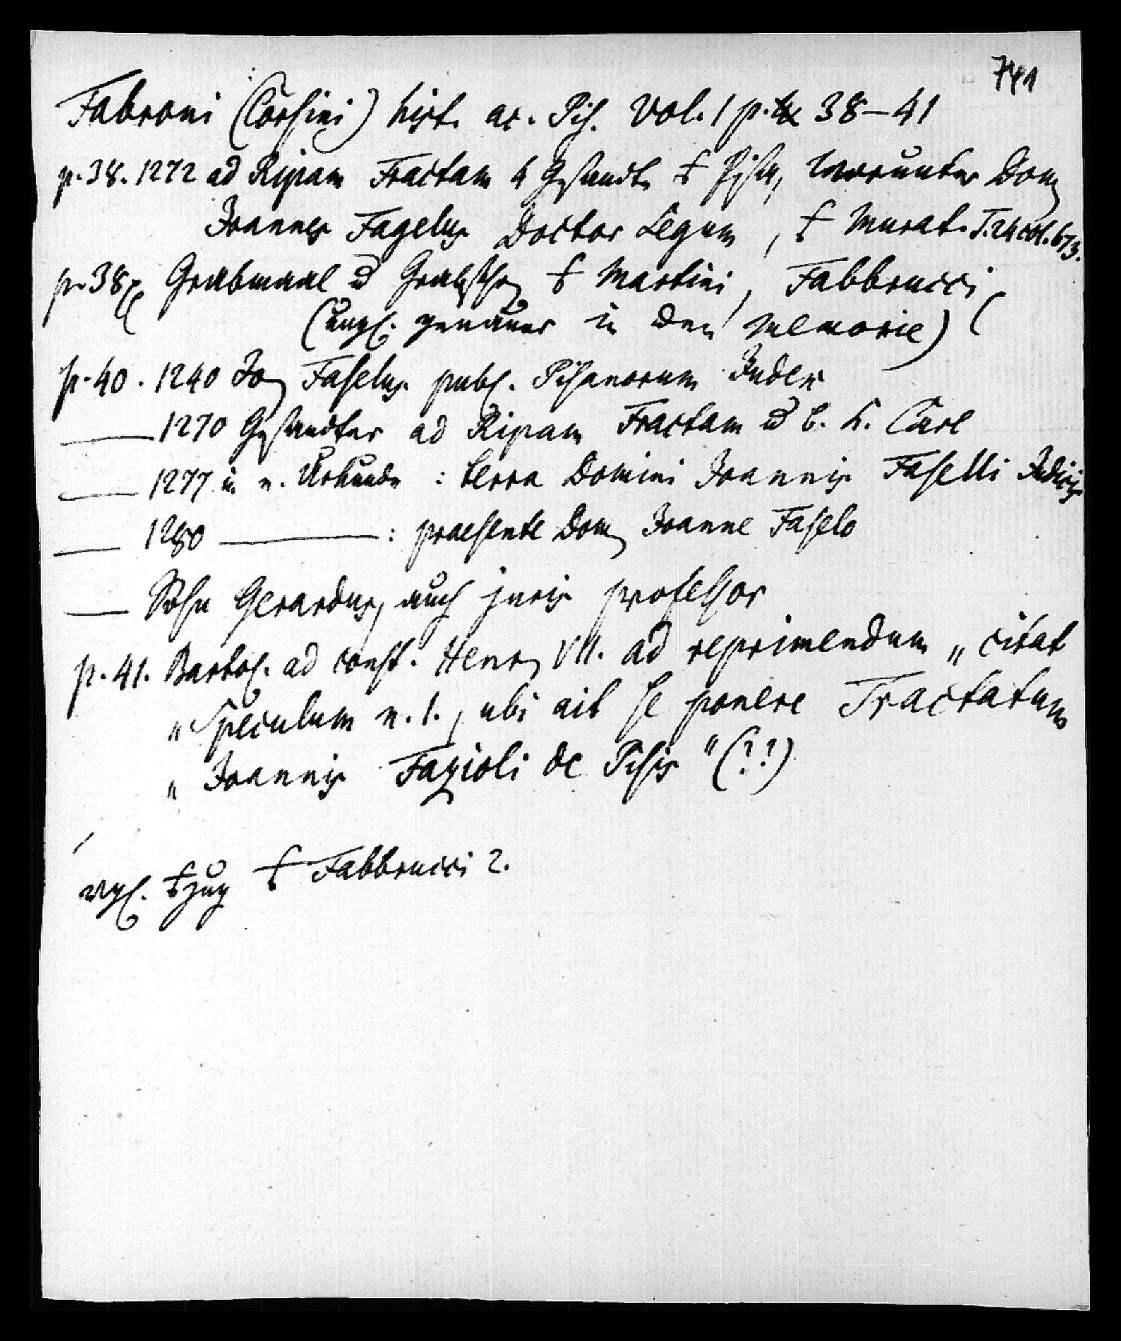 741
Fabroni (Corsini) hist. ac. Pis. Vol. 1 p. 38–41
p. 38. 1272 ad Ripam Fractam 4 Gesandte Pisa, worunter Dom
Joannes Fagelus Doctor Legum, Murat. T. 24 col. 673.
p. 38 Grabmaal u Grabschr Martini, Fabbrucci
(vergl. genauer in den Memorie)
p. 40. 1240 Jo Faselus publ. Pisanorum Judex
— 1270 Gesandter ad Ripam Fractam u b. K. Carl
— 1277 in e. Urkunde : terra Domini Joannis Faselli Judicis
— 1280 — : praesente Dom Joanne Faselo
— Sohn Gerardus, auch juris professor
p. 41. Bartol. ad const. Henr VII. ad reprimendum „citat
„Speculum n. 1., ubi ait se ponere Tractatum
„Joannis Fazioli de Pisis" (??)
vgl. Fabbrucci 2.